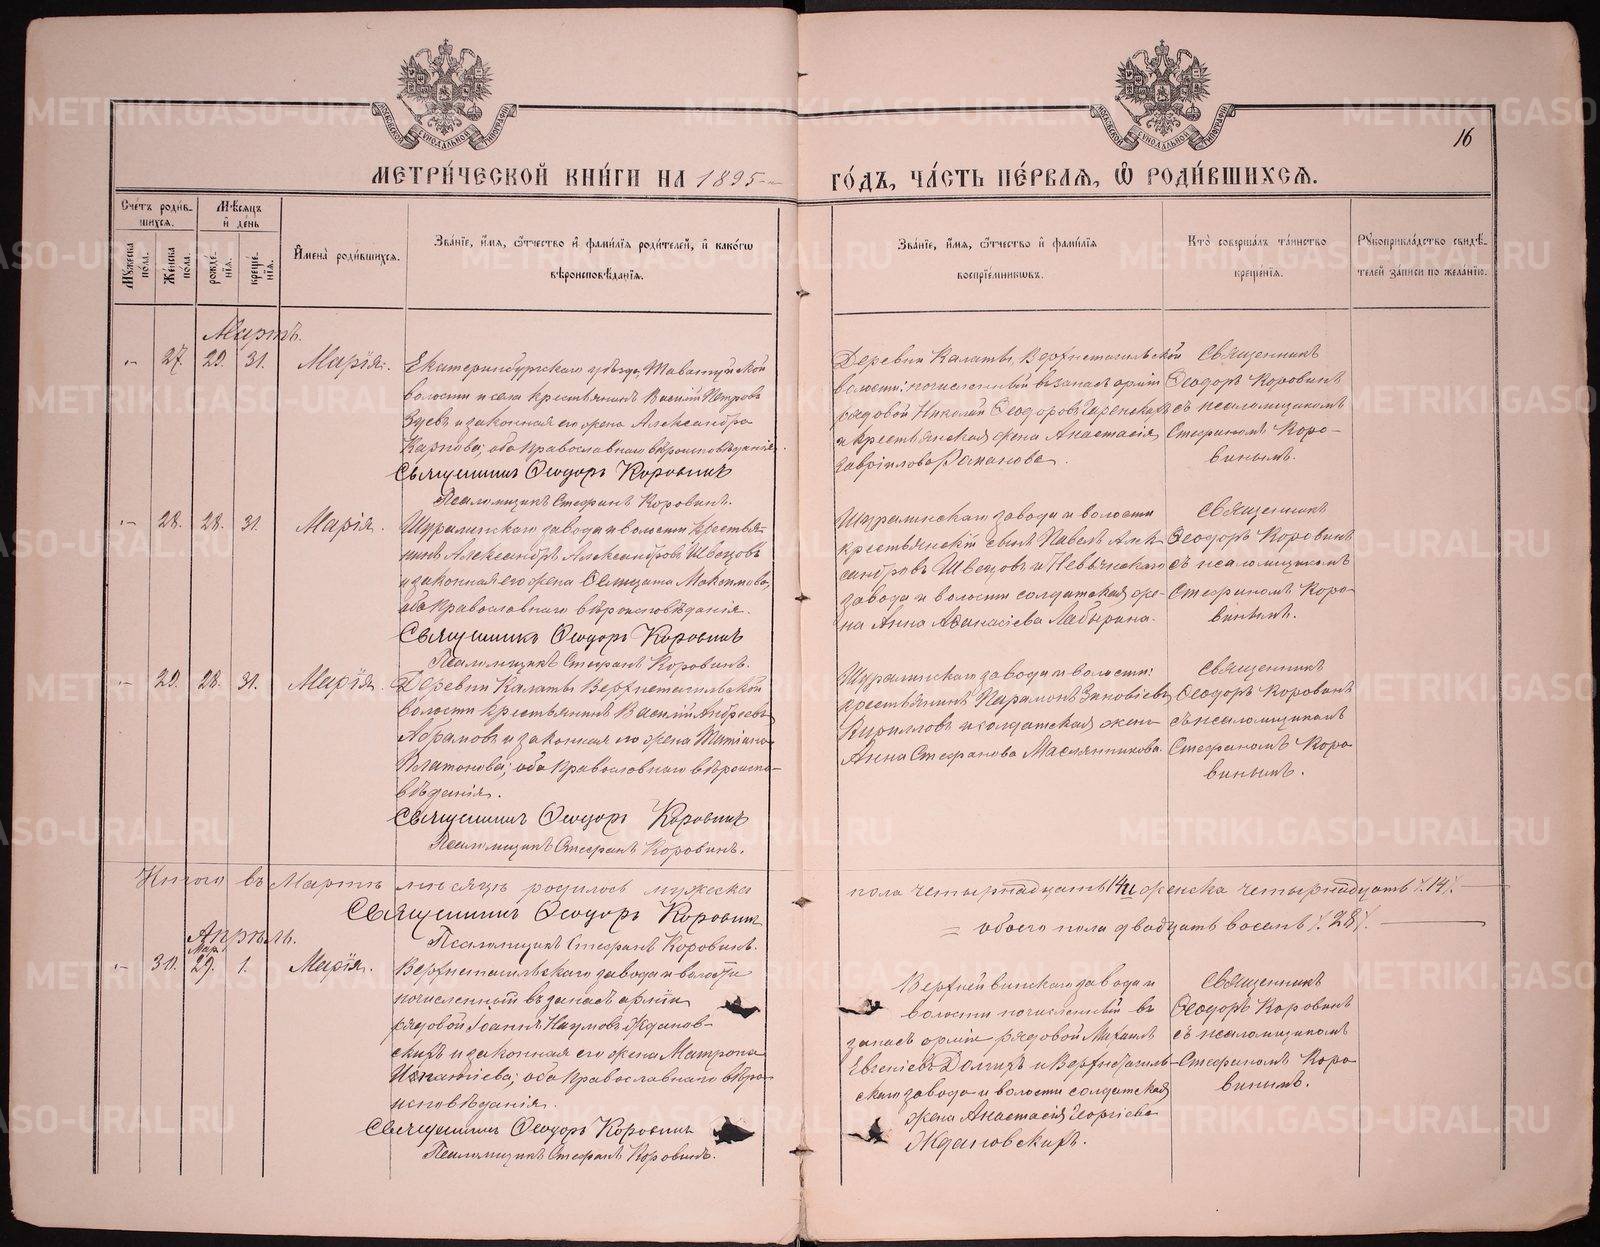 МОСКОВСКОЙ СѴНОДАЛЬНОЙ ТИПОГРАФІИ
МОСКОВСКОЙ СѴНОДАЛЬНОЙ ТИПОГРАФІИ
16
МЕТРИ́ЧЕСКОЙ КНИ́ГИ НА 1895
ГО́ДЪ, ЧА́СТЬ ПЕ́РВАЯ, Ѽ РОДИ́ВШИХСЯ.
Сче́тъ роди́в-
шихся.
Мѣ́сяцъ
и҆ де́нь
Мꙋ́жеска по́ла.
Же́нска по́ла.
рожде́нїѧ.
креще́нїѧ.
И҆мена̀ роди́вшихся.
Зва́нїе, и҆́мя, ѻ҆́тчество и҆ фами́лїя роди́телей, и҆ како́гѡ
вѣроисповѣ́данїя.
Зва́нїе, и҆́мя, ѻ҆́тчество и҆ фами́лїя
воспрїе́мниковъ.
Кто̀ соверша́лъ та́инство
креще́нїя.
Рꙋкоприкла́дство свидѣ́-
телей за́писи по жела́нїю.
Мартъ.
27. 29. 31. Марія.
Екатеринбургскаго уѣзда, Таватуйской
волости и села крестьянинъ Василій Петровъ
Зуевъ и законная его жена Александра
Карпова; оба православнаго вѣроисповѣданія.
Священникъ Ѳеодоръ Коровинъ
Псаломщикъ Стефанъ Коровинъ.
Деревни Калаты, Верхнетагильской
волости: почисленный въ запасъ арміи
рядовой Николай Ѳеодоровъ
и крестьянская жена Анастасія
Гавріилова Романова.
Священникъ
Ѳеодоръ Коровинъ
съ псаломщикомъ
Стефаномъ Коро-
винымъ.
28. 28. 31. Марія.
Шуралинскаго завода и волости крестья-
нинъ Александръ Александровъ Швецовъ
и законная его жена Максимова,
оба православнаго вѣроисповѣданія.
Священникъ Ѳеодоръ Коровинъ
Псаломщикъ Стефанъ Коровинъ.
Шуралинскаго завода и волости
крестьянскій сынъ Павелъ Алек-
сандровъ Швецовъ и Невьянскаго
завода и волости солдатская же-
на Анна Аѳанасіева
Священникъ
Ѳеодоръ Коровинъ
съ псаломщикомъ
Стефаномъ Коро-
винымъ.
29. 28. 31. Марія.
Деревни Калаты Верхнетагильской
волости крестьянинъ Василій Андреевъ
Абрамовъ и законная его жена Татіана
Платонова; оба православнаго вѣроиспо-
вѣданія.
Священникъ Ѳеодоръ Коровинъ
Псаломщикъ Стефанъ Коровинъ.
Шуралинскаго завода и волости:
крестьянинъ Парамонъ Зиновіевъ
Кирилловъ и солдатская жена
Анна Стефанова Маслянникова.
Священникъ
Ѳеодоръ Коровинъ
съ псаломщикомъ
Стефаномъ Коро-
винымъ.
Итого въ Мартѣ мѣсяцѣ родилось мужеска
пола четырнадцать 14 и женска четырнадцать /.14/.
Священникъ Ѳеодоръ Коровинъ
обоего пола двадцать восемь /.28/.
Псаломщикъ Стефанъ Коровинъ.
Апрѣль.
Мар.
30. 29. 1. Марія.
Верхнетагильскаго завода и волости
почисленный въ запасъ арміи
рядовой Іоаннъ Наумовъ Жданов-
скихъ и законная его жена Матрона
Игнатіева; оба православнаго вѣро-
исповѣданія.
Священникъ Ѳеодоръ Коровинъ
Псаломщикъ Стефанъ Коровинъ.
завода и
волости почисленный въ
запасъ арміи рядовой Михаилъ
Евгеніевъ Долгихъ и Верхнетагиль-
скаго завода и волости солдатская
жена Анастасія Георгіева
Ждановскихъ.
Священникъ
Ѳеодоръ Коровинъ
съ псаломщикомъ
Стефаномъ Коро-
винымъ.
METRIKI.GASO-URAL.RU